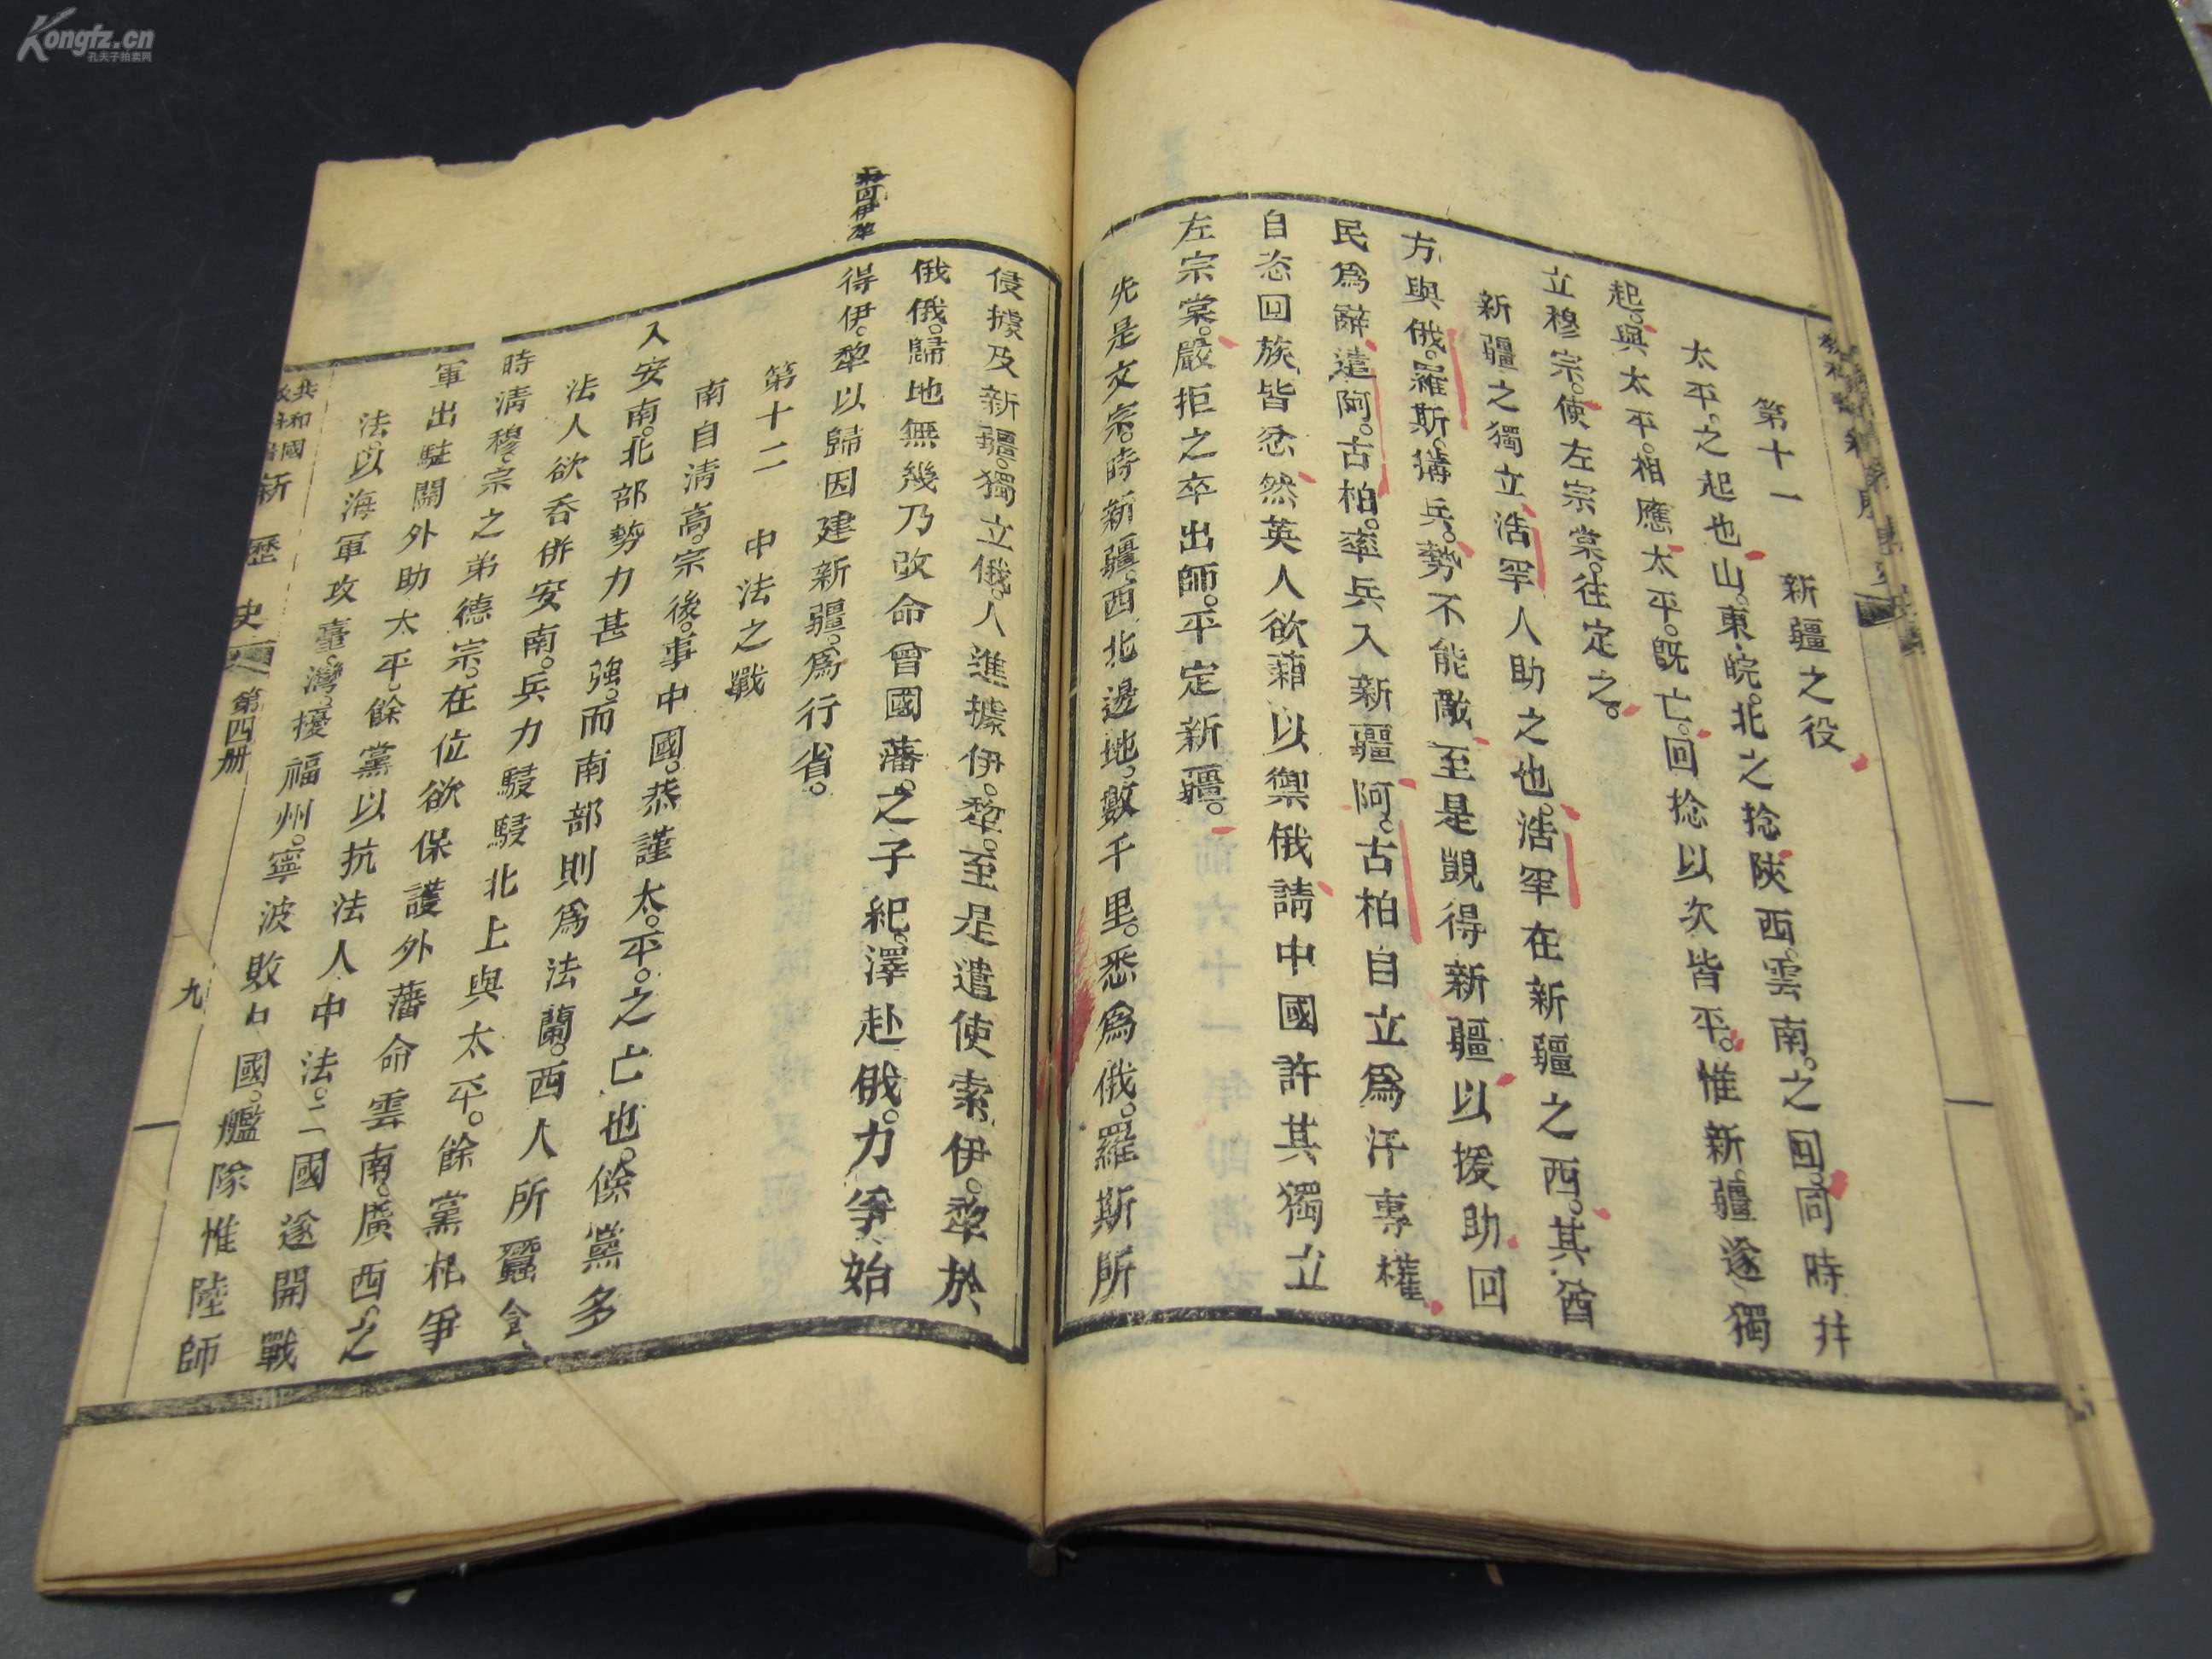 Kongfz.cn
孔夫子拍卖网
第十一 新疆之役
太平之起也山東皖北之捻陝西雲南之回同時並
起與太平相應太平旣亡回捻以次皆平惟新疆遂獨
立穆宗使左宗棠往定之
新疆之獨立浩罕人助之也浩罕在新疆之西其酋
方與俄羅斯搆兵勢不能敵至是覬得新疆以援助回
民爲辭遣阿古柏率兵入新疆阿古柏自立爲汗專權
自恣回族皆忿然英人欲藉以禦俄請中國許其獨立
左宗棠嚴拒之卒出師平定新疆
先是文宗時新疆西北邊地數千里悉爲俄羅斯所
侵據及新疆獨立俄人進據伊犂至是遣使索伊犂於
俄俄歸地無幾乃改命曾國藩之子紀澤赴俄力爭始
得伊犂以歸因建新疆爲行省
索回伊犂
第十二 中法之戰
南自清高宗後事中國恭謹太平之亡也餘黨多
入安南北部勢力甚強而南部則爲法蘭西人所蠶食
法人欲吞併安南兵力駸駸北上與太平餘黨相爭
時清穆宗之弟德宗在位欲保護外藩命雲南廣西之
軍出駐關外助太平餘黨以抗法人中法二國遂開戰
法以海軍攻臺灣擾福州寧波敗中國艦隊惟陸師
共和國
新歷史 第四册
九